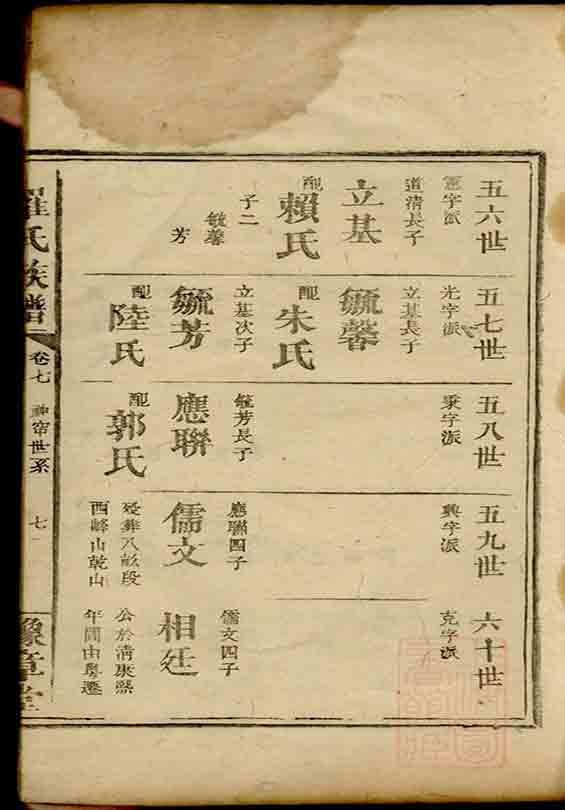 五六世
憲字派
道清長子
立基
配
賴氏
子二
毓馨
芳
五七世
光字派
立基長子
毓馨
配
朱氏
立基次子
毓芳
配
陸氏
五八世
秉字派
毓芳長子
應聯
配
郭氏
五九世
興字派
應聯四子
儒文
歿葬八畝段
西峰山乾山
六十世
克字派
儒文四子
相廷
公於清康熙
年間由粵遷
羅氏族譜
卷七
世系
七
豫章堂